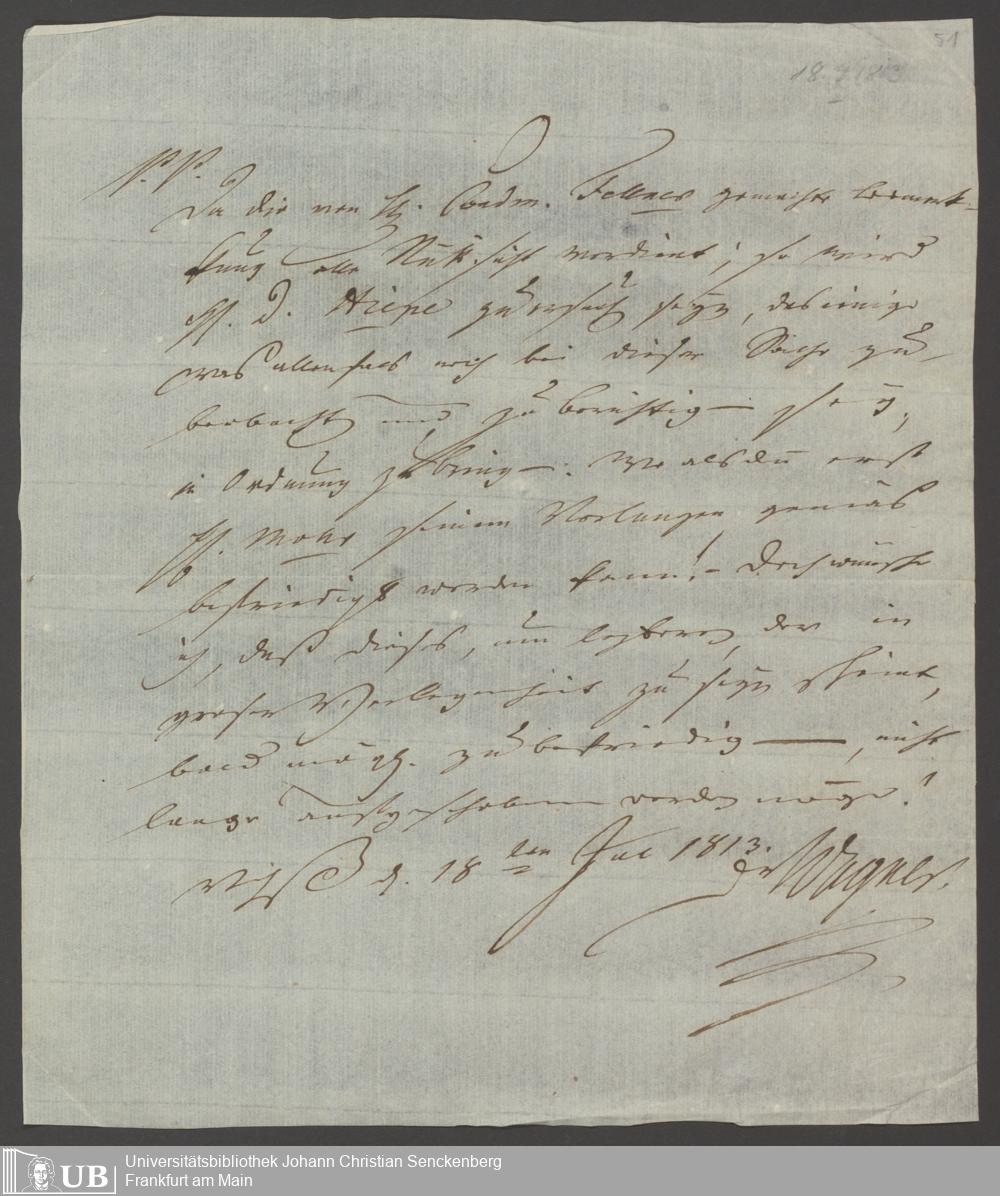 51
18.7.1813
P. P.
Da die von H. Condm. Fellner gemachte Bemerk-
kung alle Rücksicht verdient; so wird
H. D. Hiepe zu ersuch seyn, dasienige
was allenfals noch bei dieser Sache zu
beobacht und zu berichtig– seÿ,
in Ordnung zu bring–. Wo alsdn erst
H. Mohr seinem Verlangen gemäs
befriedigt werden kann! – Doch wünsche
ich, daß dieses, um lezteren, der in
groser Verlegenheit zu seyn scheint,
bald mögl. zu befriedig–, nicht
lange aufgeschoben werden möge!
d. 18ten Jul 1813.
Dr Wagner.
UB
Universitätsbibliothek Johann Christian Senckenberg
Frankfurt am Main